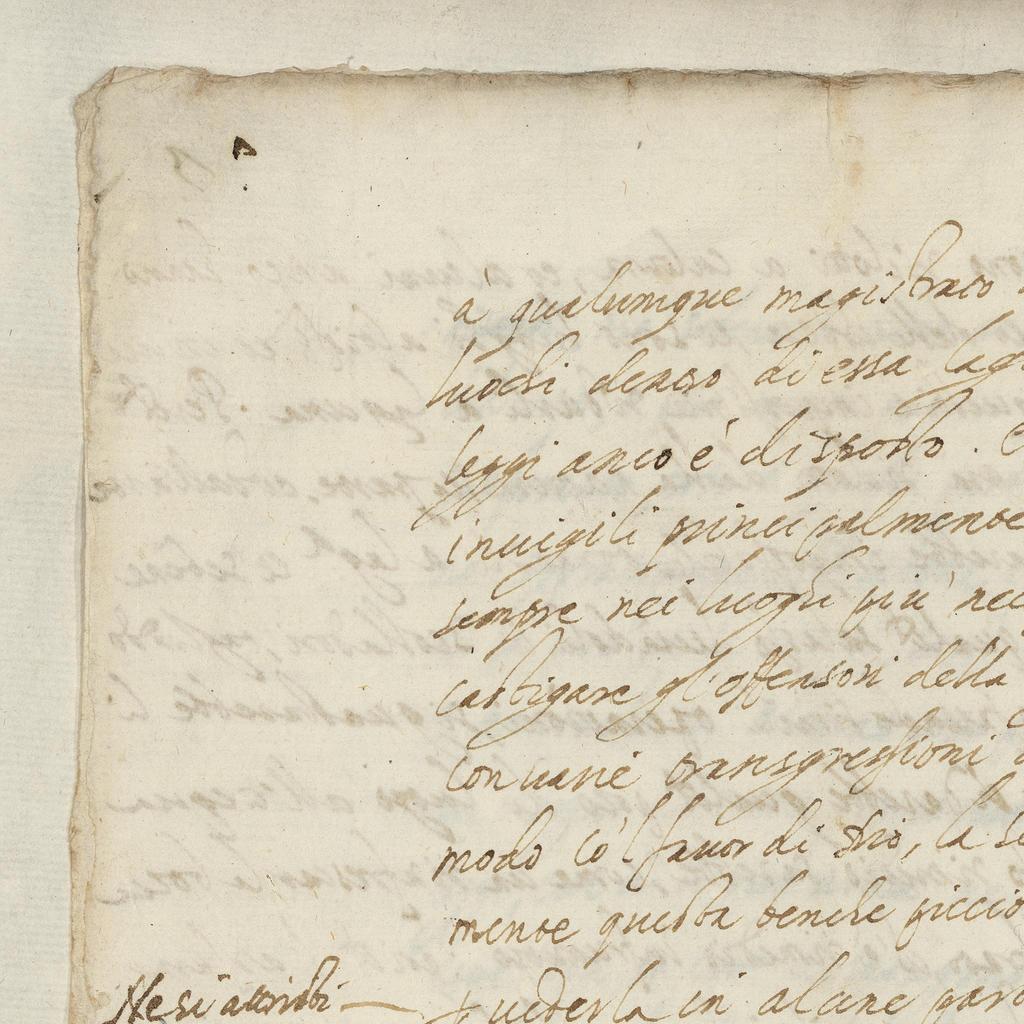 à qualumque magistrato
luochi dentro di essa lag
leggi anco è disposto. 
inuigili principalmente
sempre nei luoghi più nec
castigare gl'offensori della
con uarie transgressioni
modo co'l fauor di Dio, la se
mente questa benche piccio
Ne si attristi
uederla in alcune par